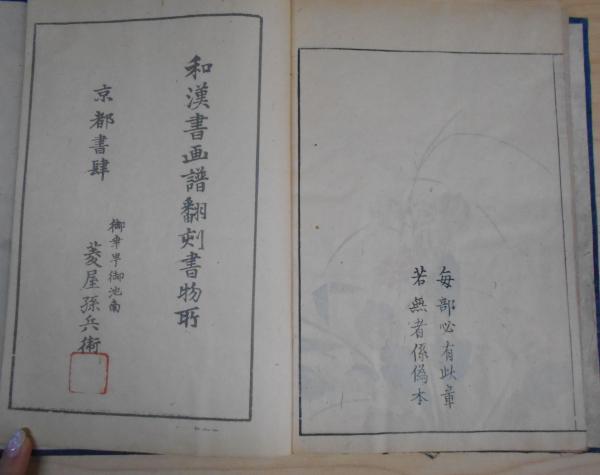 每部必有此章
若無者係偽本
和漢書画譜翻刻書物所
京都書肆
御幸町御池南
菱屋孫兵衛